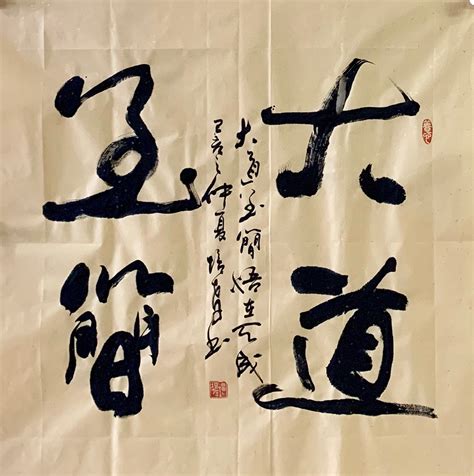 大道
至簡
大道至簡悟在天成
己亥之仲夏培育书